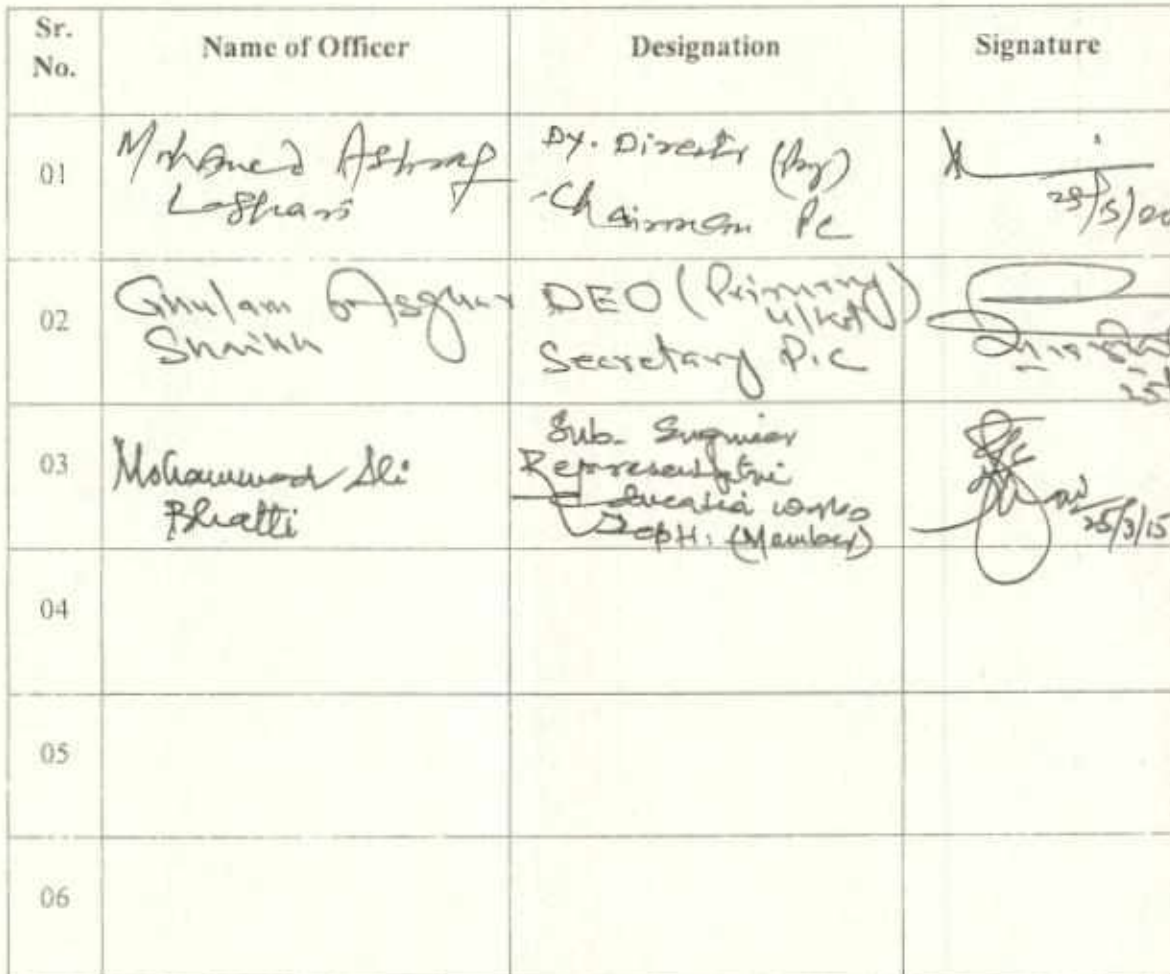 Sr. No.
Name of Officer
Designation
Signature
01
Mohamed Ashraf
Laghari
Dy. Director (Pry)
Chairman PC
02
Ghulam Asghar
Shaikh
DEO (Primary)
Secretary P.C
03
Mohammad Ali
Bhatti
Sub. Engineer
Representative
Education works
Deptt: (Member)
25/3/15
04
05
06